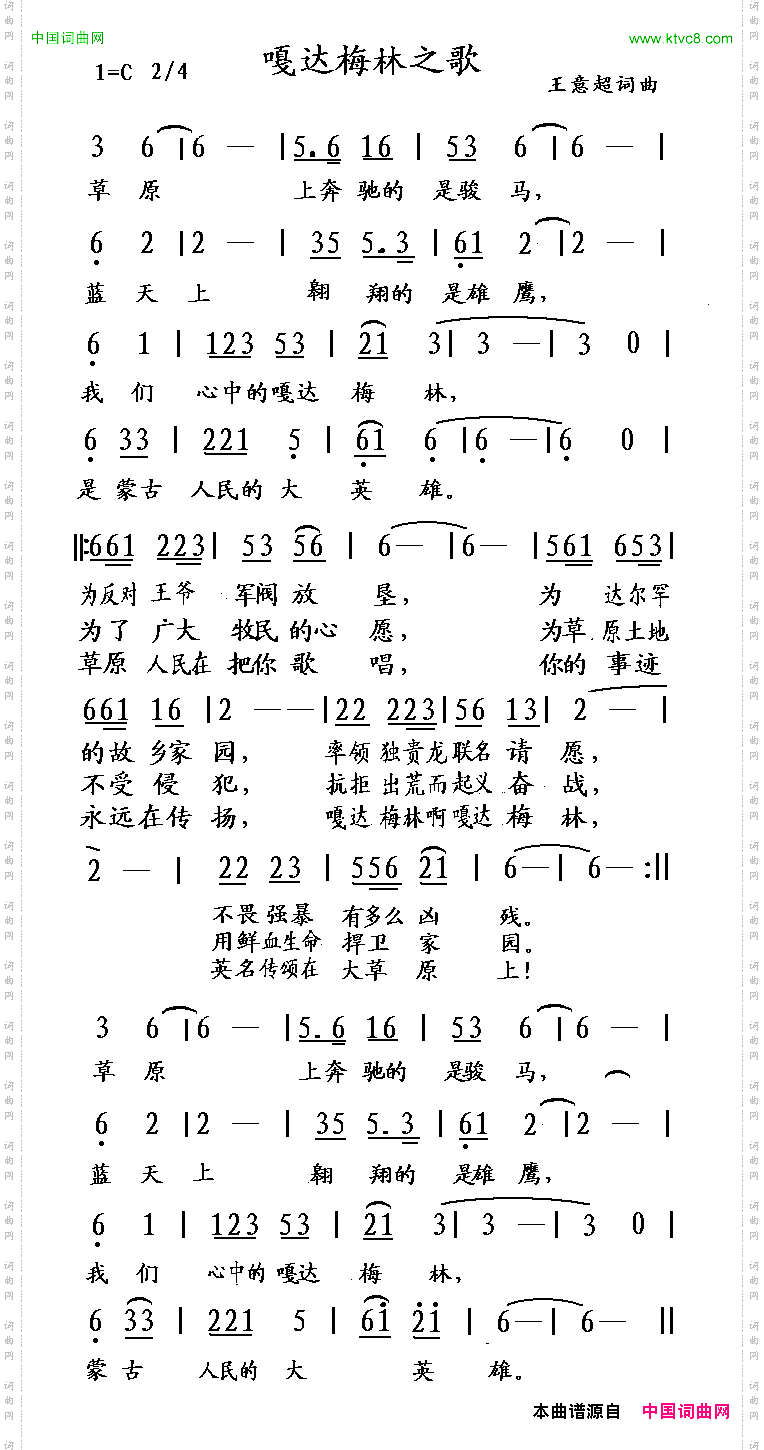 中国词曲网
www.ktvc8.com
嘎达梅林之歌
1=C 2/4
王意超词曲
3 6 | 6 — | 5. 6 16 | 53 6 | 6 — |
草原 上奔驰的是骏马，
6 2 | 2 — | 35 5. 3 | 61 2 | 2 — |
蓝天上 翱翔的是雄鹰，
6 1 | 123 53 | 21 3 | 3 — | 3 0 |
我们心中的嘎达梅林，
6 33 | 221 5 | 61 6 | 6 — | 6 0 |
是蒙古人民的大英雄。
‖: 661 223 | 53 56 | 6 — | 6 — | 561 653 |
为反对王爷军阀放垦， 为达尔罕
为了广大牧民的心愿， 为草原土地
草原人民在把你歌唱， 你的事迹
661 16 | 2 — — | 22 223 | 56 13 | 2 — |
的故乡家园， 率领独贵龙联名请愿，
不受侵犯， 抗拒出荒而起义奋战，
永远在传扬， 嘎达梅林啊嘎达梅林，
2 — | 22 23 | 556 21 | 6 — | 6 — :‖
不畏强暴有多么凶残。
用鲜血生命捍卫家园。
英名传颂在大草原上！
3 6 | 6 — | 5. 6 16 | 53 6 | 6 — |
草原 上奔驰的是骏马，
6 2 | 2 — | 35 5. 3 | 61 2 | 2 — |
蓝天上 翱翔的是雄鹰，
6 1 | 123 53 | 21 3 | 3 — | 3 0 |
我们心中的嘎达梅林，
6 33 | 221 5 | 61 21 | 6 — | 6 — ‖
蒙古人民的大英雄。
本曲谱源自 中国词曲网